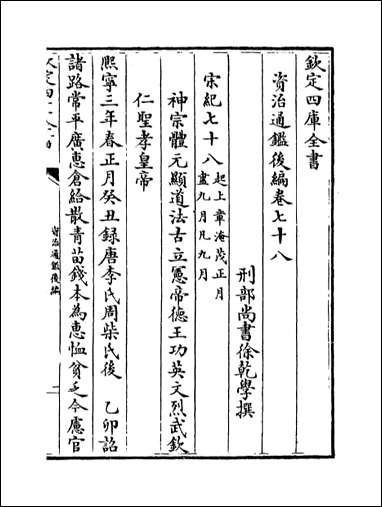 欽定四庫全書
資治通鑑後編卷七十八
刑部尚書徐乾學撰
宋紀七十八起上章淹茂正月盡九月凡九月
神宗體元顯道法古立憲帝德王功英文烈武欽
仁聖孝皇帝
熙寧三年春正月癸丑録唐李氏周柴氏後 乙卯詔
諸路常平廣惠倉給散青苗錢本為惠恤貧乏今慮官
資治通鑑後編
一